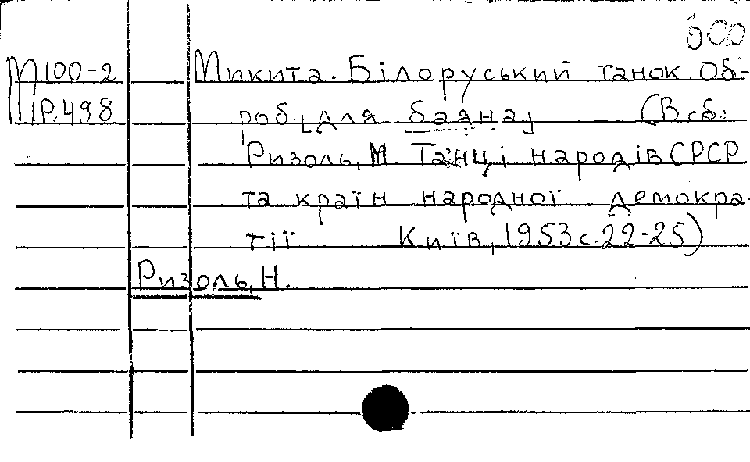 600
М100-2 Микита. Білоруський танок. Об-
Р.498 роб [для баяна] (В сб:
Ризоль, М. Танці народів СРСР
та країн народної демокра-
тії Київ, 1953 с.22-25)
Ризоль, Н.